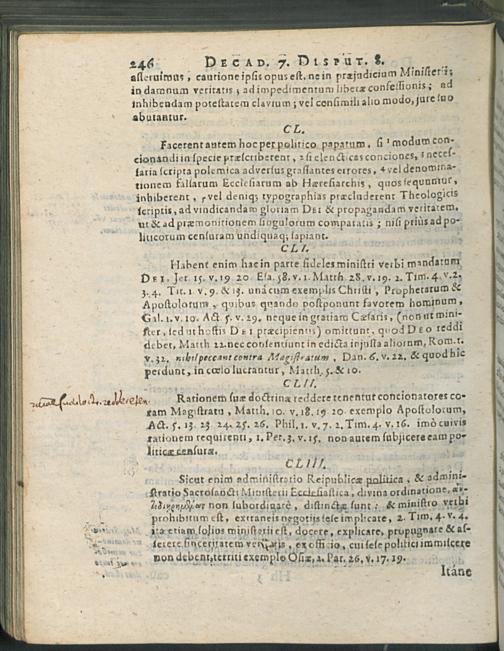 246 DECAD. 7. DISPUT. 8.
asseruimus, cautione ipsis opus est, ne in præjudicium Ministerii;
in damnum veritatis; ad impedimentum liberæ confessionis; ad
inhibendam potestatem clavium; vel consimili alio modo, jure suo
abutantur.
CL.
Facerent autem hoc per politico papatum, si ¹ modum con-
cionandi in specie præscriberent, 2 si elencticas conciones, 3 neces-
saria scripta polemica adversus grassantes errores, 4 vel denomina-
tionem falsarum Ecclesiarum ab Hæresiarchis, quos sequuntur,
inhiberent, 5 vel deniq; typographias præcluderent Theologicis
scriptis, ad vindicandam gloriam DEI & propagandam veritatem,
ut & ad præmonitionem singulorum comparatis; nisi prius ad po-
liticorum censuram undiquaq; sapiant.
CLI.
Habent enim hac in parte fideles ministri verbi mandatum
DEI, Jer. 15. v. 19. 20. Esa. 58. v. 1. Matth. 28. v. 19. 2. Tim. 4. v. 2.
3. 4. Tit. 1. v. 9. & 13. unà cum exemplis Christi, Prophetarum &
Apostolorum, quibus quando postponunt favorem hominum,
Gal. 1. v. 10. Act. 5. v. 29. neque in gratiam Cæsaris, (non ut mini-
ster, sed ut hostis DEI præcipientis) omittunt, quod DEO reddi
debet, Matth. 22. nec consentiunt in edicta injusta aliorum, Rom. 1.
v. 32. nihil peccant contra Magistratum, Dan. 6. v. 22. & quod hîc
perdunt, in cœlo lucrantur, Matth. 5. & 10.
CLII.
Rationem suæ doctrinæ reddere tenentur concionatores co-
ram Magistratu, Matth. 10. v. 18. 19. 20. exemplo Apostolorum,
Act. 5. 13. 23. 24. 25. 26. Phil. 1. v. 7. 2. Tim. 4. v. 16. imò cuivis
rationem requirenti, 1. Pet. 3. v. 15. non autem subjicere eam po-
liticæ censuræ.
CLIII.
Sicut enim administratio Reipublicæ politica, & admini-
stratio Sacrosancti Ministerii Ecclesiastica, divina ordinatione,
non subordinatæ, distinctæ sunt; & ministro verbi
prohibitum est, extraneis negotiis sese implicare, 2. Tim. 4. v. 4.
ita etiam solius ministri est, docere, explicare, propugnare & as-
serere sinceritatem veritatis, ex officio, cui sese politici immiscere
non debent, territi exemplo Osiæ, 2. Par. 26. v. 17. 19.
Itáne